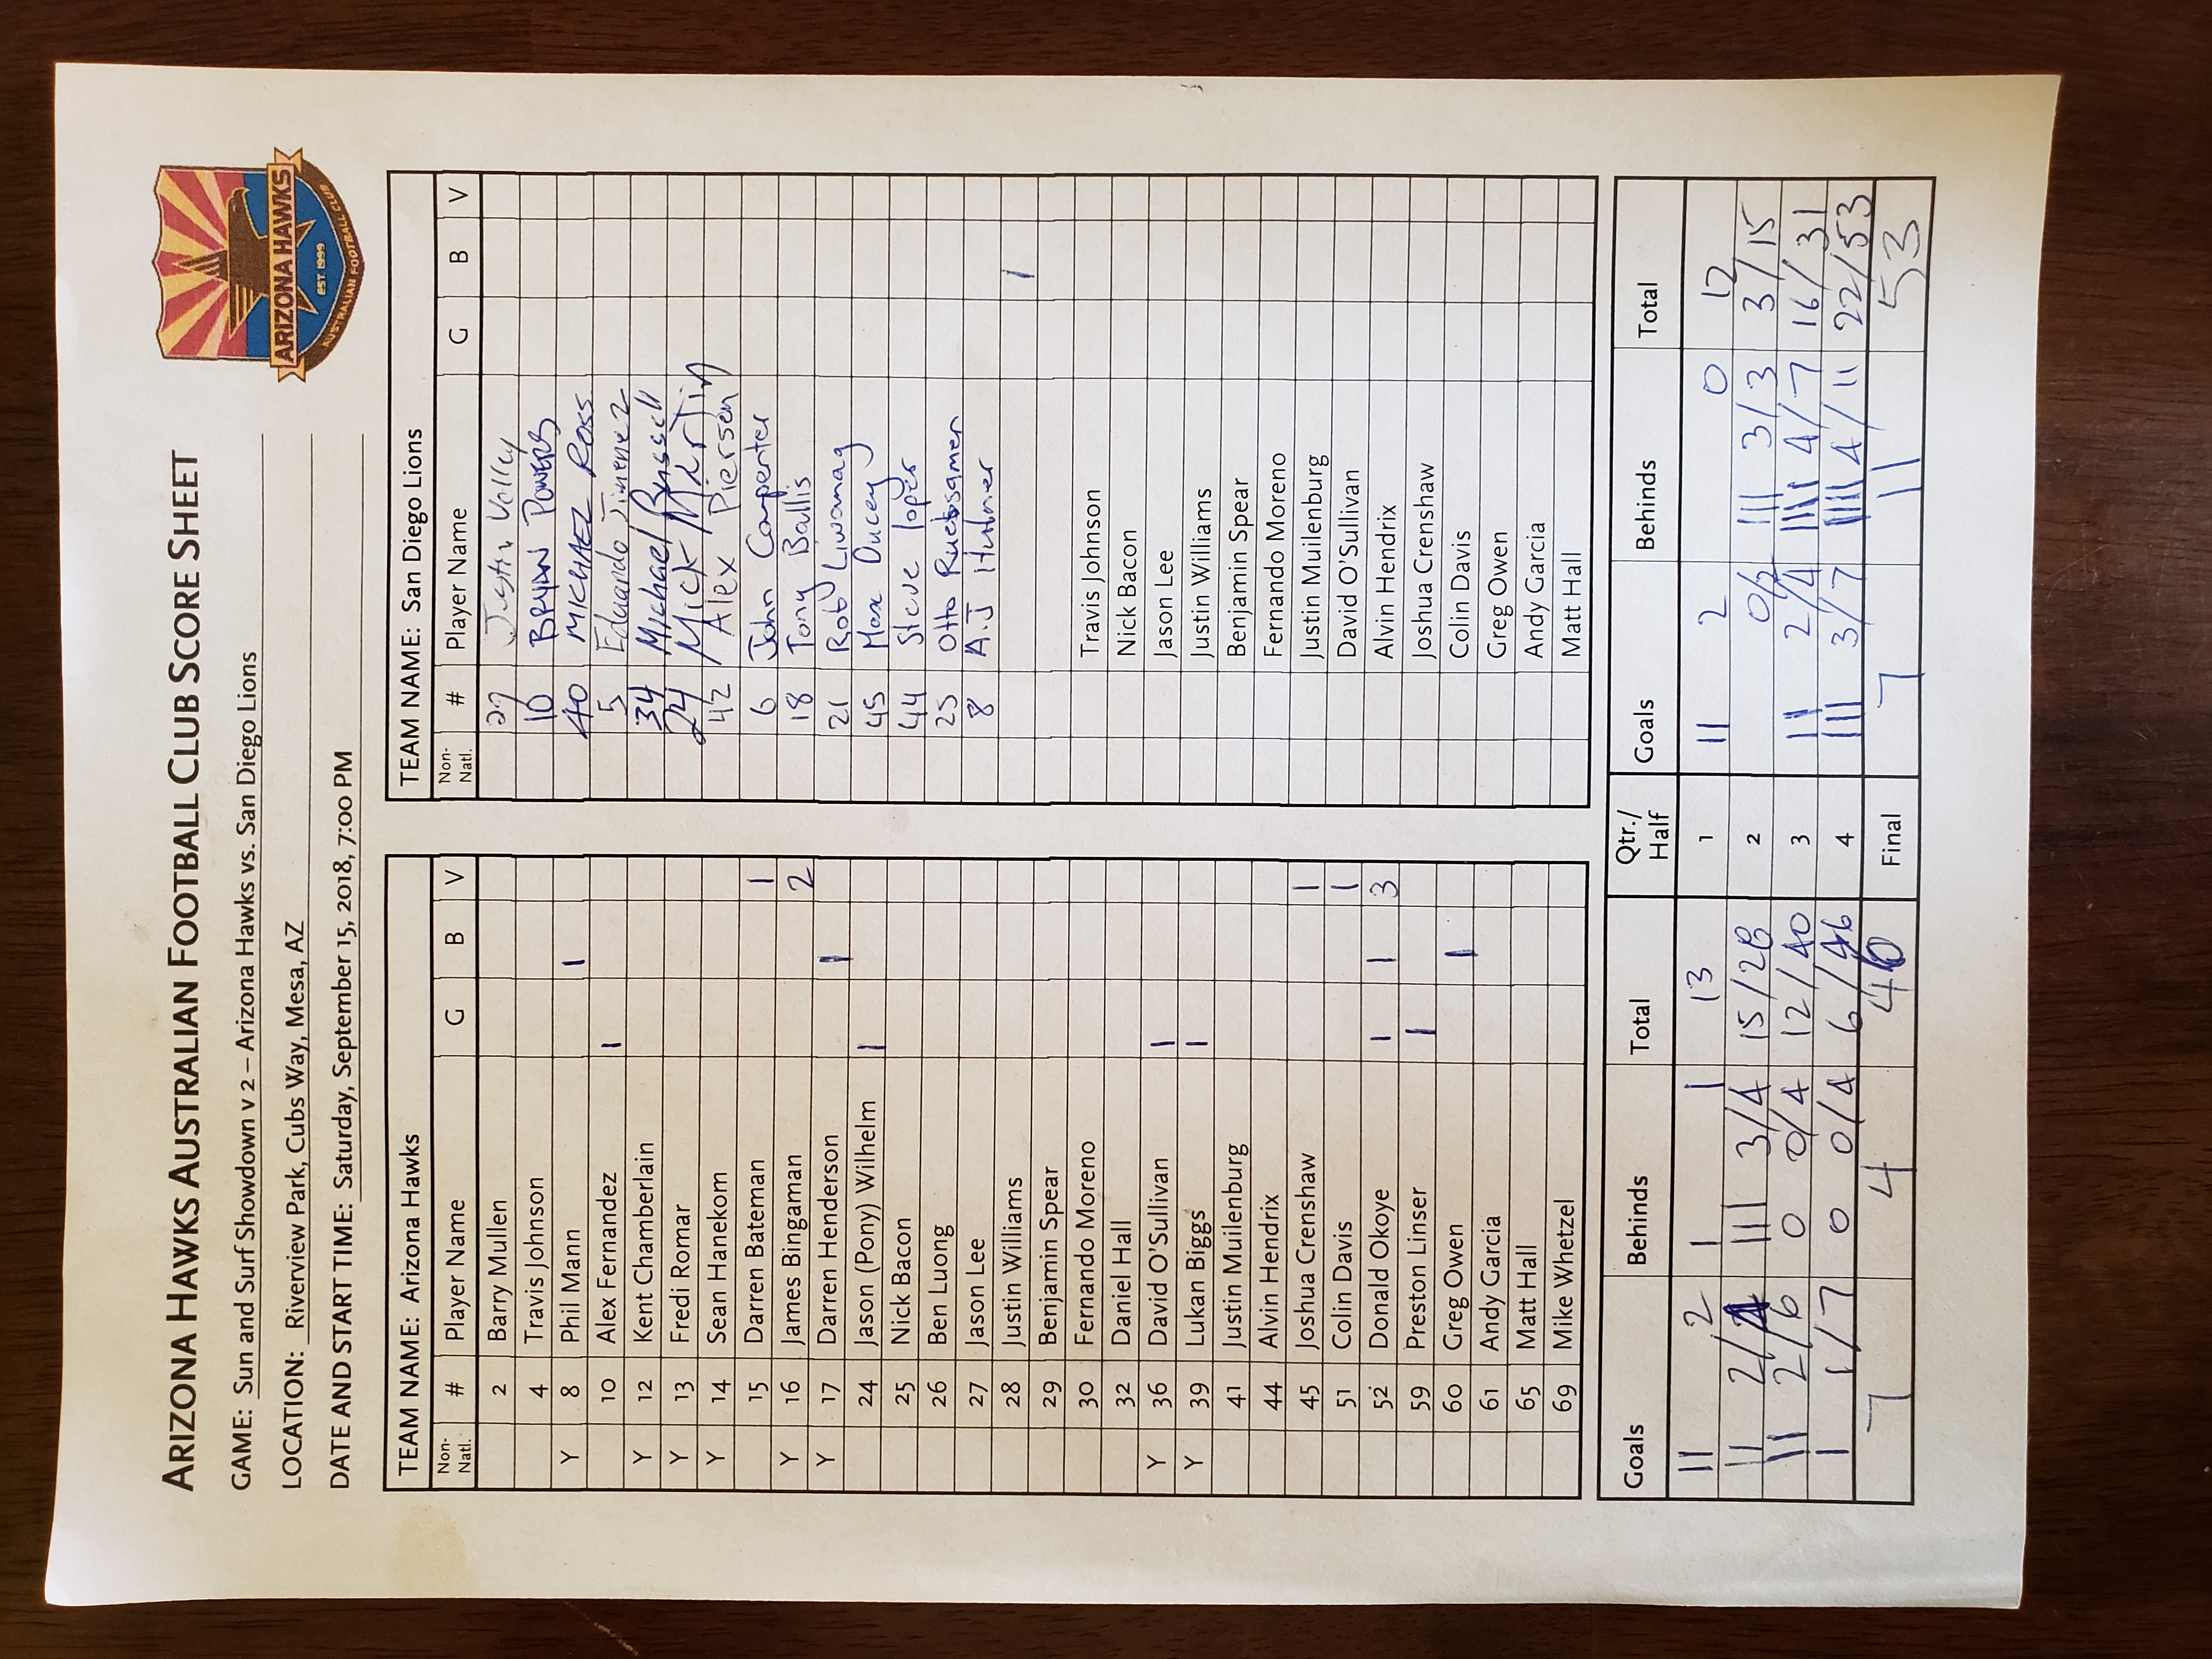 ARIZONA HAWKS AUSTRALIAN FOOTBALL CLUB SCORE SHEET
ARIZONA HAWKS
EST 1999
AUSTRALIAN FOOTBALL CLUB
GAME: Sun and Surf Showdown v 2 – Arizona Hawks vs. San Diego Lions
LOCATION: Riverview Park, Cubs Way, Mesa, AZ
DATE AND START TIME: Saturday, September 15, 2018, 7:00 PM
TEAM NAME: Arizona Hawks
Non-Natl. # Player Name G B V
2 Barry Mullen
4 Travis Johnson
Y 8 Phil Mann 1
10 Alex Fernandez 1
Y 12 Kent Chamberlain
Y 13 Fredi Romar
Y 14 Sean Hanekom
15 Darren Bateman 1
Y 16 James Bingaman 2
Y 17 Darren Henderson 1
24 Jason (Pony) Wilhelm 1
25 Nick Bacon
26 Ben Luong
27 Jason Lee
28 Justin Williams
29 Benjamin Spear
30 Fernando Moreno
32 Daniel Hall
Y 36 David O'Sullivan 1
Y 39 Lukan Biggs 1
41 Justin Muilenburg
44 Alvin Hendrix
45 Joshua Crenshaw 1
51 Colin Davis 1
52 Donald Okoye 1 1 3
59 Preston Linser 1
60 Greg Owen 1
61 Andy Garcia
65 Matt Hall
69 Mike Whetzel
TEAM NAME: San Diego Lions
Non-Natl. # Player Name G B V
27 Justin
10 BRYAN POWERS
40 MICHAEL ROSS
5 Eduardo Jimenez
34 Michael Russell
24 Mick Martin
42 Alex Pierson
6 John Carpenter
18 Tony Ballis
21 Rob Liwanag
45 Max Ducey
44 Steve Lopez
25 Otto Ruebsamer
8 A.J
1
Travis Johnson
Nick Bacon
Jason Lee
Justin Williams
Benjamin Spear
Fernando Moreno
Justin Muilenburg
David O'Sullivan
Alvin Hendrix
Joshua Crenshaw
Colin Davis
Greg Owen
Andy Garcia
Matt Hall
Goals Behinds Total Qtr./Half Goals Behinds Total
11 2 1 1 13 1 11 2 0 12
11 2/4 111 3/4 15/28 2 0/2 111 3/3 3/15
11 2/6 0 0/4 12/40 3 11 2/4 1111 4/7 16/31
1 1/7 0 0/4 6/46 4 111 3/7 1111 4/11 22/53
7 4 46 Final 7 11 53